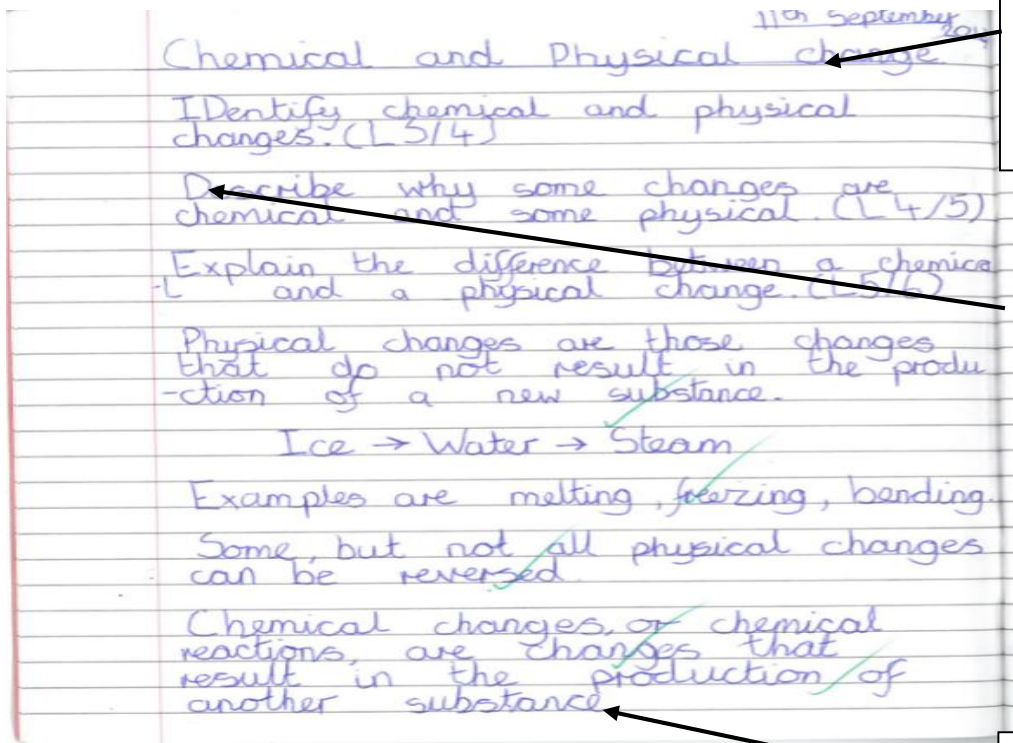 11th September
Chemical and Physical change
IDentify chemical and physical
changes. (L3/4)
Describe why some changes are
chemical and some physical. (L4/5)
Explain the difference between a chemica
-L and a physical change. (L5/6)
Physical changes are those changes
that do not result in the produ
-ction of a new substance.
Ice → Water → Steam
Examples are melting, freezing, bending.
Some, but not all physical changes
can be reversed.
Chemical changes, or chemical
reactions, are changes that
result in the production of
another substance.